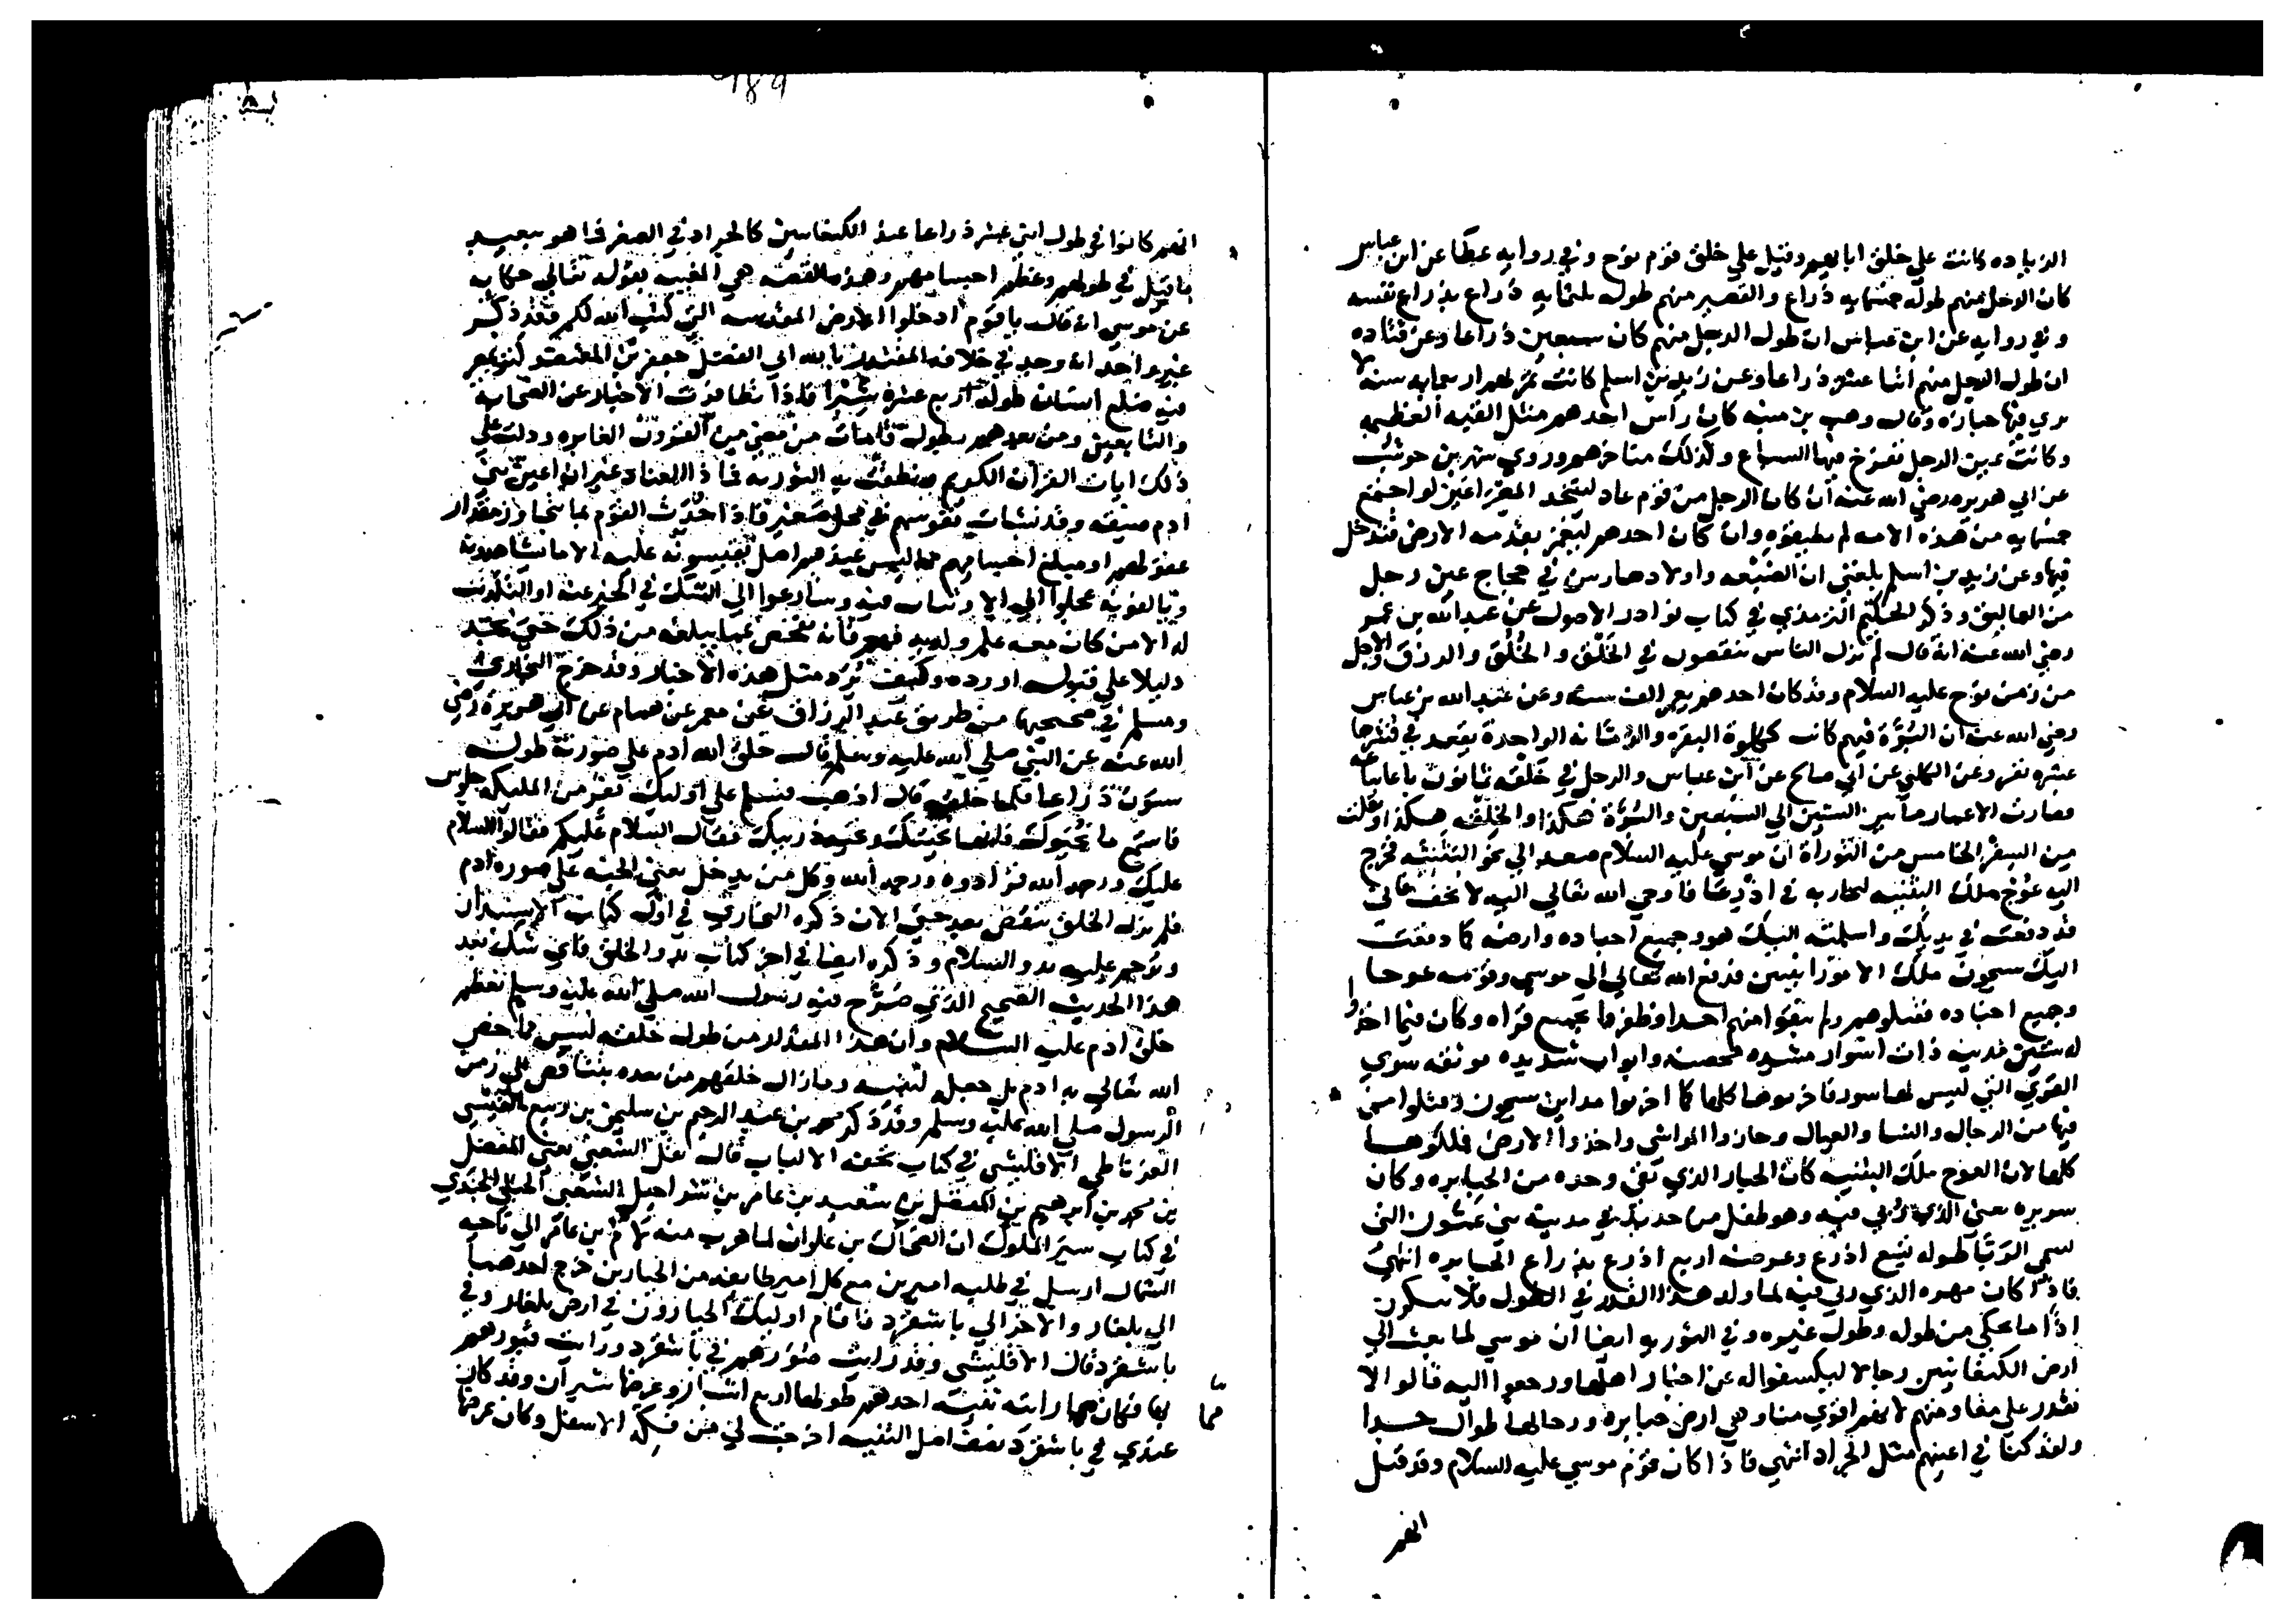 الزياده كانت علي خلق ابايهم وقيل علي خلق قوم نوح وفي روايه عطا عن ابن عباس
كان الرجل منهم طوله خمسمايه ذراع والقصير منهم طوله ثلثمايه ذراع بذراع نفسه
وفي روايه عن ابن عباس ان طول الرجل منهم كان سبعين ذراعا وعن قتاده
ان طول الرجل منهم اثنا عشر ذراعا وعن زيد بن اسلم كانت تمر بهم اربعمايه سنه لا
يري فيها جنازه وقال وهب بن منبه كان راس احدهم مثل القبه العظيمه
وكانت عين الرجل تفرخ فيها السباع وكذلك مناخرهم وروي شهر بن حوشب
عن ابي هريره رضي الله عنه ان كان الرجل من قوم عاد ليتخذ المصراعين لو اجتمع
خمسمايه من هذه الامه لم يطيقوه وان كان احدهم ليغمز بقدمه الارض فتدخل
فيها وعن زيد بن اسلم بلغني ان الضبعه واولادها ربين في حجاج عين رجل
من العماليق وذكر الحكيم الترمذي في كتاب نوادر الاصول عن عبد الله بن عمر
رضي الله عنه انه قال لم تزل الناس ينقصون في الخَلْق والخُلُق والرزق والاجل
من زمن نوح عليه السلام وقد كان احدهم يعمر الف سنه وعن عبد الله بن عباس
رضي الله عنه ان البُرَّة فيهم كانت ككلوة البقره والرمانه الواحدة يقعد في قشرها
عشره نفر وعن الكلبي عن ابي صالح عن ابن عباس والرجل في خلقه ثمانون باعا
فصارت الاعمار ما بين الستين الي السبعين والبُرَّة هكذا والخلقه هكذا ونقلت
من السفر الخامس من التوراة ان موسي عليه السلام صعد الي نحو البثنيه فخرج
اليه عوج ملك البثنيه لمحاربه في اذرعا فاوحي الله تعالي اليه لا تخف فاني
قد دفعته في يديك واسلمته اليك هو وجميع اجناده وارضه كما دفعت
اليك سيحون ملك الامورانيين فدفع الله تعالي الي موسي وقومه عوجا
وجميع اجناده فقتلوهم ولم يبقوا منهم احدا وظفر بجميع قراه وكان فيما اخذوا
له ستين مدينه ذات اسوار مشيده محصنه وابواب شديده موثقه سوي
القري التي ليس لها سور فاخربوها كلها كما اخربوا مداين سيحون وقتلوا من
فيها من الرجال والنسا والعيال وحازوا المواشي واخذوا الارض فملكوها
كلها لان العوج ملك البثنيه كان الجبار الذي بقي وحده من الجبابره وكان
سريره يعني الذي رُبي فيه وهو طفل من حديد في مدينة بني عمون التي
تسمي الربا طوله تسع اذرع وعرضه اربع اذرع بذراع الجبابره انتهي
فاذا كان مهده الذي ربي فيه لما ولد هذا القدر في الطول فلا ينكرون
اذا ما يحكي من طوله وطول غيره وفي التوريه ايضا ان موسي لما بعث الي
ارض الكنعانيين رجالا ليكشفوا له عن اخبار اهلها ورجعوا اليه قالوا لا
نقدر علي مقاومتهم لانهم اقوي منا وهي ارض جبابره ورجالها طوال جدا
ولقد كنا في اعينهم مثل الجراد انتهي فاذا كان قوم موسي عليه السلام وقد قيل
انهم
189
انهم كانوا في طول اثني عشر ذراعا عند الكنعانيين كالجراد في الصغر فما هو ببعيد
ما قيل في طولهم وعظم اجسامهم وهذه القصه هي المعنيه بقوله تعالي حكايه
عن موسي انه قال يا قوم ادخلوا الارض المقدسه التي كتب الله لكم وقد ذكر
غير واحد انه وجد في خلافه المقتدر بالله ابي الفضل جعفر بن المعتضد كنز بمصر
فيه ضلع انسان طوله اربع عشره شبرا فاذا تظافرت الاخبار عن الصحابه
والتابعين ومن بعدهم بطول قامات من مضي من القرون الغابره ودلت علي
ذلك ايات القران الكريم ونطقت به التوريه فما ذا العناد غير ان اعين بني
ادم ضيقه وقد نشات نفوسهم في محل صغير فاذا حُدّث القوم بما يتجاوز مقدار
عقولهم او مبلغ اجسامهم مما ليس عندهم اصل يقيسونه عليه الا ما يشاهدونه
ويالفونه عجلوا الي الارتياب فيه وسارعوا الي الشك في الخبر عنه او التكذيب
له الا من كان معه علم ولديه فهم فانه يفحص عما يبلغه من ذلك حتي يجد
دليلا علي قبوله او رده وكيف يُرد مثل هذه الاخبار وقد خرج البخاري
ومسلم في صحيحهما من طريق عبد الرزاق عن معمر عن همام عن ابي هريرة رضي
الله عنه عن النبي صلي الله عليه وسلم قال خلق الله ادم علي صورته طوله
ستون ذراعا فلما خلقه قال اذهب فسلم علي اوليك نفر من المليكه جلوس
فاستمع ما يحيونك فانها تحيتك وتحيه ذريتك فقال السلام عليكم فقالوا السلام
عليك ورحمه الله فزادوه ورحمه الله وكل من يدخل يعني الجنه علي صوره ادم
فلم يزل الخلق ينقص بعد حتي الان ذكره البخاري في اول كتاب الاستيذان
وترجم عليه بدو السلام وذكره ايضا في اخر كتاب بدو الخلق فاي شك بعد
هذا الحديث الصحيح الذي صرّح فيه رسول الله صلي الله عليه وسلم بعظم
خلق ادم عليه السلام وان هذا المقدار من طول خلقه ليس مما خص
الله تعالي به ادم بل جعل لبنيه وما زال خلقهم من بعده يتناقص الي زمن
الرسول صلي الله عليه وسلم وقد ذكر محمد بن عبد الرحيم بن سليمن بن ربيع القيسي
الغرناطي الاقليشي في كتاب تحفه الالباب قال نقل الشعبي يعني المفضل
بن محمد بن ابرهيم بن المفضل بن سعيد بن عامر بن شراحيل الشعبي الجندي
في كتاب سير الملوك ان الضحاك بن علوان لما هرب منه لام بن عامر الي ناحيه
الشمال ارسل في طلبه اميرين مع كل امير طايفه من الجبارين خرج احدهما
الي بلغار والاخر الي باشغرد فاقام اوليك الجبارون في ارض بلغار وفي
باشغرد قال الاقليشي وقد رايت صورهم في باشغرد ورايت قبورهم
بها فكان مما رايته ثنيه احدهم طولها اربع اشبار وعرضها شبران وقد كان
عندي في باشغرد نصف اصل الثنيه اخرجت لي من فكه الاسفل وكان عرضها
مما